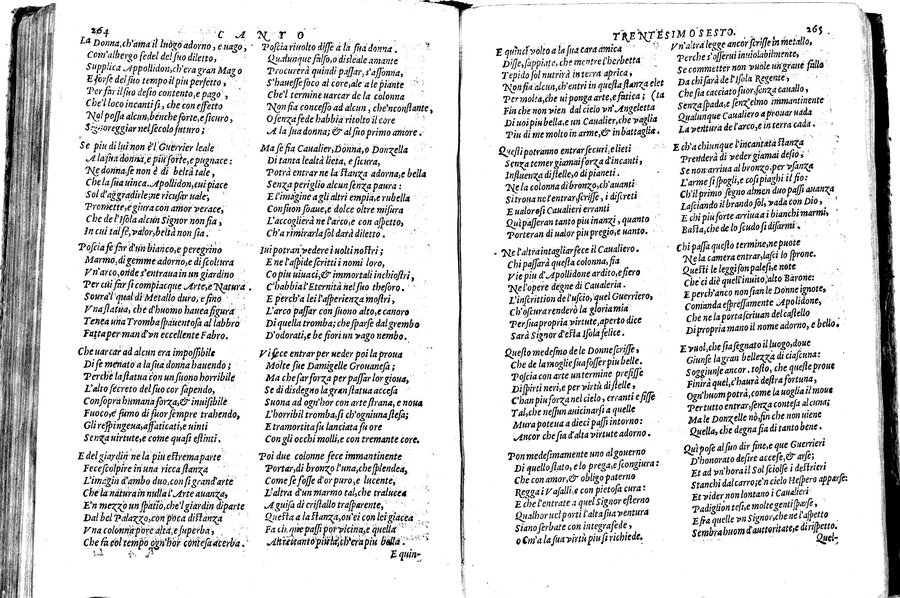 264
CANTO
La Donna, ch'ama il luogo adorno, e uago,
Com'albergo fedel del suo diletto,
Supplica Appollidon, ch'era gran Mago
E forse del suo tempo il piu perfetto,
Per far il suo desio contento, e pago,
Che'l loco incanti sì, che con effetto
Nol possa alcun, bench'e forte, e sicuro,
Signoreggiar nel secolo futuro;
Se piu di lui non è'l Guerrier leale
A la sua donna, e piu forte, e pugnace:
Ne donna se non è di beltà tale,
Che la sua uinca. Apollidon, cui piace
Sol d'aggradirle; ne ricusar uale,
Promette, e giura con amor verace,
Che de l'Isola alcun Signor non sia,
In cui tal fè, valor, beltà non sia.
Poscia fè far d'un bianco, e peregrino
Marmo, di gemme adorno, e di scoltura
Vn'arco, onde s'entraua in un giardino
Per cui far si compiacque Arte, e Natura.
Soura'l qual di Metallo duro, e fino
Vna statua, che d'huomo hauea figura
Tenea una Tromba spauentosa al labbro
Fatta per man d'vn eccellente Fabro.
Che uarcar ad alcun era impossibile
Di se menato a la sua donna hauendo;
Perche la statua con un suono horribile
L'alto secreto del suo cor sapendo,
Con sopra humana forza, & inuisibile
Fuoco, e fumo di fuor sempre trahendo,
Gli respingeua, affaticati, e uinti
Senza virtute, e come quasi estinti.
E del giardin ne la piu estrema parte
Fece scolpire in una ricca stanza
L'imagin d'ambo duo, con sì grand'arte
Che la natura in nulla l'Arte auanza,
E'n mezzo un spatio, che'l giardin diparte
Dal bel Palazzo, con poca distanza
Vna colonna pose alta, e superba,
Che fa col tempo ogn'hor contesa acerba.
Poscia riuolto disse a la sua donna.
Qualunque falso, o disleale amante
Procurerà quindi passar, s'assonna,
S'hauesse foco al core, ale a le piante
Che'l termine uarcar de la colonna
Non fia concesso ad alcun, che'nconstante,
O senza fede habbia ritolto il core
A la sua donna; & al suo primo amore.
Ma se fia Caualier, Donna, o Donzella
Di tanta lealtà lieta, e sicura,
Potrà entrar ne la stanza adorna, e bella
Senza periglio alcun senza paura:
E l'imagine a gli altri empia, e rubella
Con suon soaue, e dolce oltre misura
L'accoglierà ne l'arco, e con aspetto,
Ch'a rimirarla sol darà diletto.
Iui potran vedere i uolti nostri;
E ne l'aspide scritti i nomi loro,
Co piu uiuaci, & immortali inchiostri,
C'habbia l'Eternità nel suo thesoro.
E perch'a lei l'asperienza mostri,
L'arco passar con suono alto, e canoro
Di quella tromba; che sparse dal grembo
D'odorati, e be fiori un vago nembo.
Vi fece entrar per veder poi la proua
Molte sue Damigelle Grouanesa;
Ma che far forza per passar lor gioua,
Se di disdegno la gran statua accesa
Suona ad ogn'hor con arte strana, e noua
L'horribil tromba, sì ch'ogniuna stesa;
E tramortita fu lanciata fuore
Con gli occhi molli, e con tremante core.
Poi due colonne fece immantinente
Portar, di bronzo l'una, che splendea,
Come se fosse d'or puro, e lucente,
L'altra d'un marmo tal, che tralucea
A guisa di cristallo trasparente,
Questa a la stanza, ou'ei con lei giacea
Fa cinque passi por vicina, e quella
Altretanto piu là, ch'era piu bella.
E quin-
TRENTESIMOSESTO.
265
E quinci volto a la sua cara amica
Disse, sappiate, che mentre l'herbetta
Tepido sol nutrirà in terra aprica,
Non fia alcun, ch'entri in questa stanza elet
Per molta, che ui ponga arte, e fatica; (ta
Fin che non vien dal cielo vn'Angeletta
Di uoi piu bella, e un Caualier, che vaglia
Piu di me molto in arme, & in battaglia.
Questi potranno entrar securi, e lieti
Senza temer giamai forza d'incanti,
Influenza di stelle, o di pianeti.
Ne la colonna di bronzo, ch'auanti
Si troua ne l'entrar scrisse, i discreti
E ualorosi Caualieri erranti
Quì passeran tanto piu inanzi, quanto
Porteran di ualor piu pregio, e uanto.
Ne l'altra intagliar fece il Caualiero.
Chi passarà questa colonna, fia
Vie piu d'Apollidone ardito, e fiero
Ne l'opere degne di Caualeria.
L'inscrittion de l'uscio, quel Guerriero,
Ch'oscura renderà la gloria mia
Per sua propria virtute, aperto dice
Sarà Signor d'esta Isola felice.
Questo medesimo de le Donne scrisse,
Che de la moglie sua fosser piu belle.
Poscia con arte un termine prefisse
Di spirti neri, e per virtù di stelle,
C'han piu forza nel cielo, erranti e fisse
Tal, che nessun auicinarsi a quelle
Mura poteua a dieci passi intorno:
Ancor che sia d'alta virtute adorno.
Pon medesimamente uno al gouerno
Di quello stato, e lo prega, e scongiura:
Che con amor, & obligo paterno
Regga i Vasalli, e con pietosa cura:
E che l'entrate a quel Signor esterno
Qualhor uscì por ti l'alta sua ventura
Siano serbate con integra fede,
O com'a la sua virtù piu si richiede.
Vn'altra legge ancor scrisse in metallo,
Perche s'osserui inuiolabilmente,
Se commetter non vuole un graue fallo
Da chi sarà de l'Isola Regente,
Che sia cacciato fuor, senza cauallo,
Senza spada, e senz'elmo immantinente
Qualunque Caualiero a prouar uada
La ventura de l'arco, e in terra cada.
E ch'a chiunque l'incantata stanza
Prenderà di veder giamai desio,
Se non arriua al bronzo, per vsanza
L'arme si spogli, e così paghi il fio:
Ch'il primo segno almen duo passi auanza
Lasciando il brando sol, vada con Dio,
E chi piu forte arriua a i bianchi marmi,
Basta, che de lo scudo si disarmi.
Chi passa questo termine, ne puote
Ne la camera entrar, lasci lo sprone.
Questi le leggi son palesi, e note
Che ci diè quell'inuito, alto Barone:
E perch'anco non sian le Donne ignote,
Comanda espressamente Apolidone,
Che ne la porta scriuan del castello
Di propria mano il nome adorno, e bello.
E vuol, che sia segnato il luogo, doue
Giunse la gran bellezza di ciascuna:
Soggiunse ancor. tosto, che queste proue
Finirà quel, c'haurà destra fortuna,
Ogn'huom potrà, come la uoglia il moue
Per tutto entrar, senza contesa alcuna;
Ma le Donzelle nò, fin che non uiene
Quella, che degna sia di tanto bene.
Quì pose al suo dir fine, e que Guerrieri
D'honorato desire accese, & arse;
Et ad vn'hora il Sol sciolse i destrieri
Stanchi dal carro; e'n cielo Hespero apparse:
Et vider non lontano i Caualieri
Padiglion tesi, e molte genti sparse,
E fra quelle vn Signor, che ne l'aspetto
Sembra huom d'auttoritate, e di rispetto.
Quel-